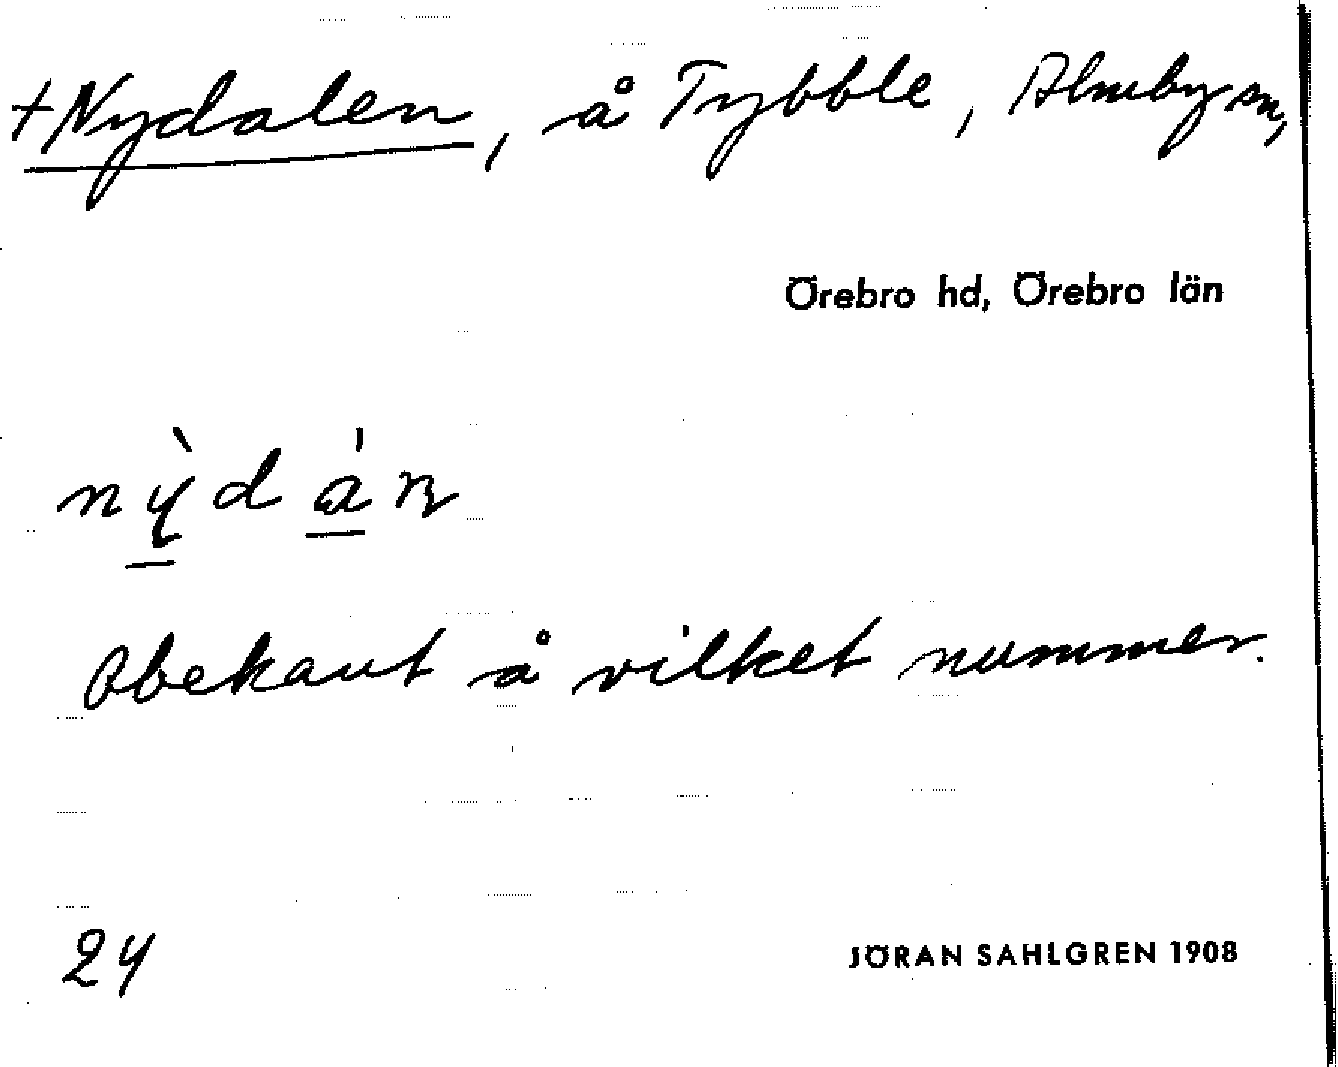 +Nydalen, å Tybble, Almby sn,
Örebro hd, Örebro län
nỳdán
Obekant å vilket nummer.
24
JÖRAN SAHLGREN 1908